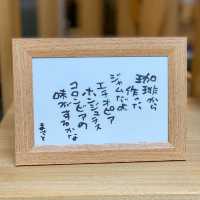 珈琲から
作った
ジャムだよ
エチオピア
ホンジュラス
コロンビアの
味がするかな